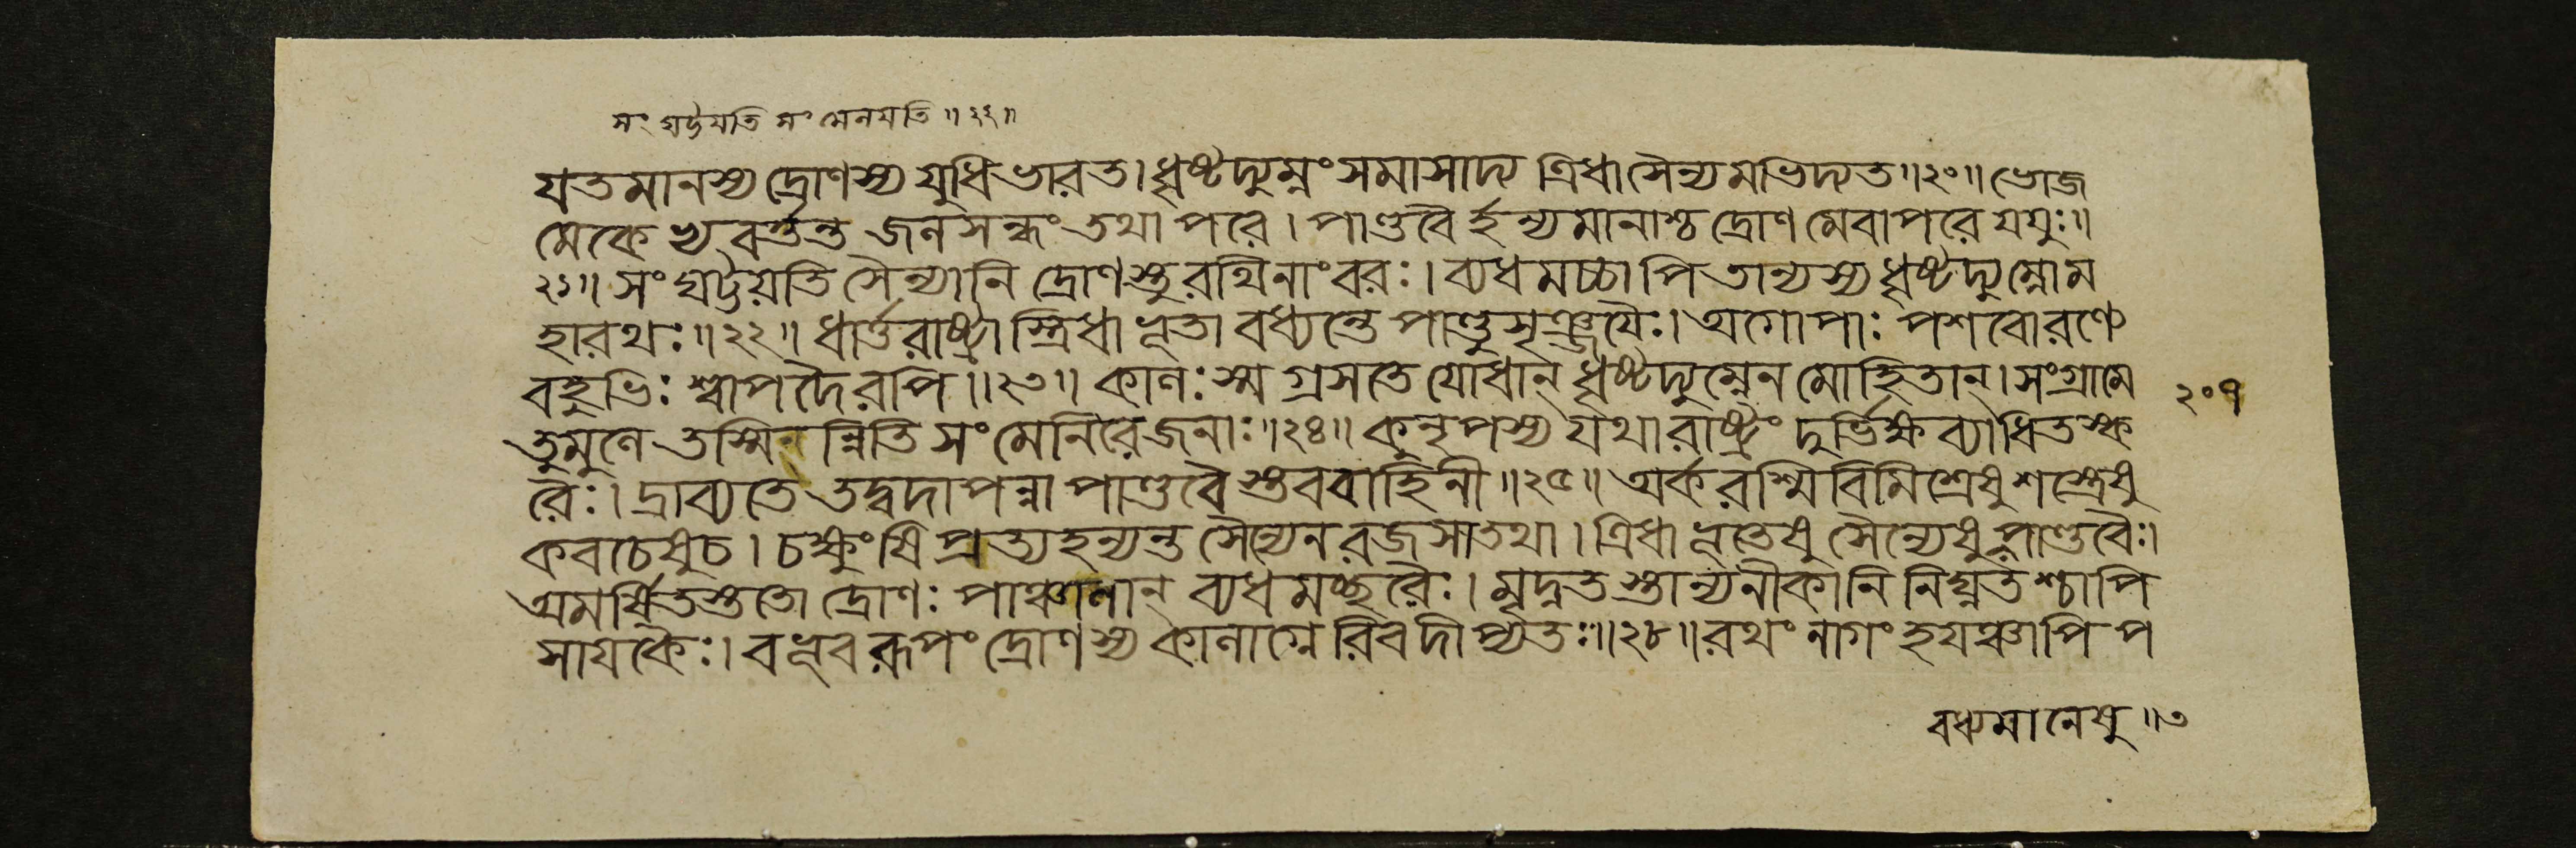 সংঘট্টয়তি সংমেনয়তি॥২২॥
যতমানস্য দ্রোণস্য যুধি ভারত। ধৃষ্টদ্যুম্নং সমাসাদ্য ত্রিধা সৈন্যমভিদ্যত॥২০॥ ভোজ
মেকে ভ্যবর্ত্তন্ত জলসন্ধং তথাপরে। পাণ্ডবৈর্হন্যমানাশ্চ দ্রোণমেবাপরে যযুঃ॥
২১॥ সংঘট্টয়তি সৈন্যানি দ্রোণস্তু রথিনাং বরঃ। ব্যধমচ্চাপি তান্যস্য ধৃষ্টদ্যুম্নো ম
হারথঃ॥২২॥ ধার্ত্তরাষ্ট্রাস্ত্রিধাভূতা বধ্যন্তে পাণ্ডুসৃঞ্জয়ৈঃ। অগোপাঃ পশবোরণ্যে
বহুভিঃ শ্বাপদৈরপি॥২৩॥ কালঃ স্ম গ্রসতে যোধান্ ধৃষ্টদ্যুম্নেন মোহিতান্। সংগ্রামে
তুমুলে তস্মিন ন্নিতি সংমেনিরে জনাঃ॥২৪॥ কুনৃপস্য যথা রাষ্ট্রং দুর্ভিক্ষব্যাধিতস্ক
রৈঃ। দ্রাব্যতে তদ্বদাপন্না পাণ্ডবৈস্তব বাহিনী॥২৫॥ অর্করশ্মিবিমিশ্রেষু শস্ত্রেষু
কবচেষু চ। চক্ষুংষি প্রত্যহন্যন্ত সৈন্যেন রজসা তথা। ত্রিধাভূতেষু সৈন্যেষু পাণ্ডবৈঃ।
অমর্ষিতস্ততো দ্রোণঃ পাঞ্চালান্ ব্যধমচ্ছরৈঃ। মৃদ্নতস্তান্যনীকানি নিঘ্নতশ্চাপি
সায়কৈঃ। বভূব রূপং দ্রোণস্য কালাগ্নেরিব দীপ্যতঃ॥২৮॥ রথং নাগং হয়ঞ্চাপি প
২০৭
বধ্যমানেষু॥৩